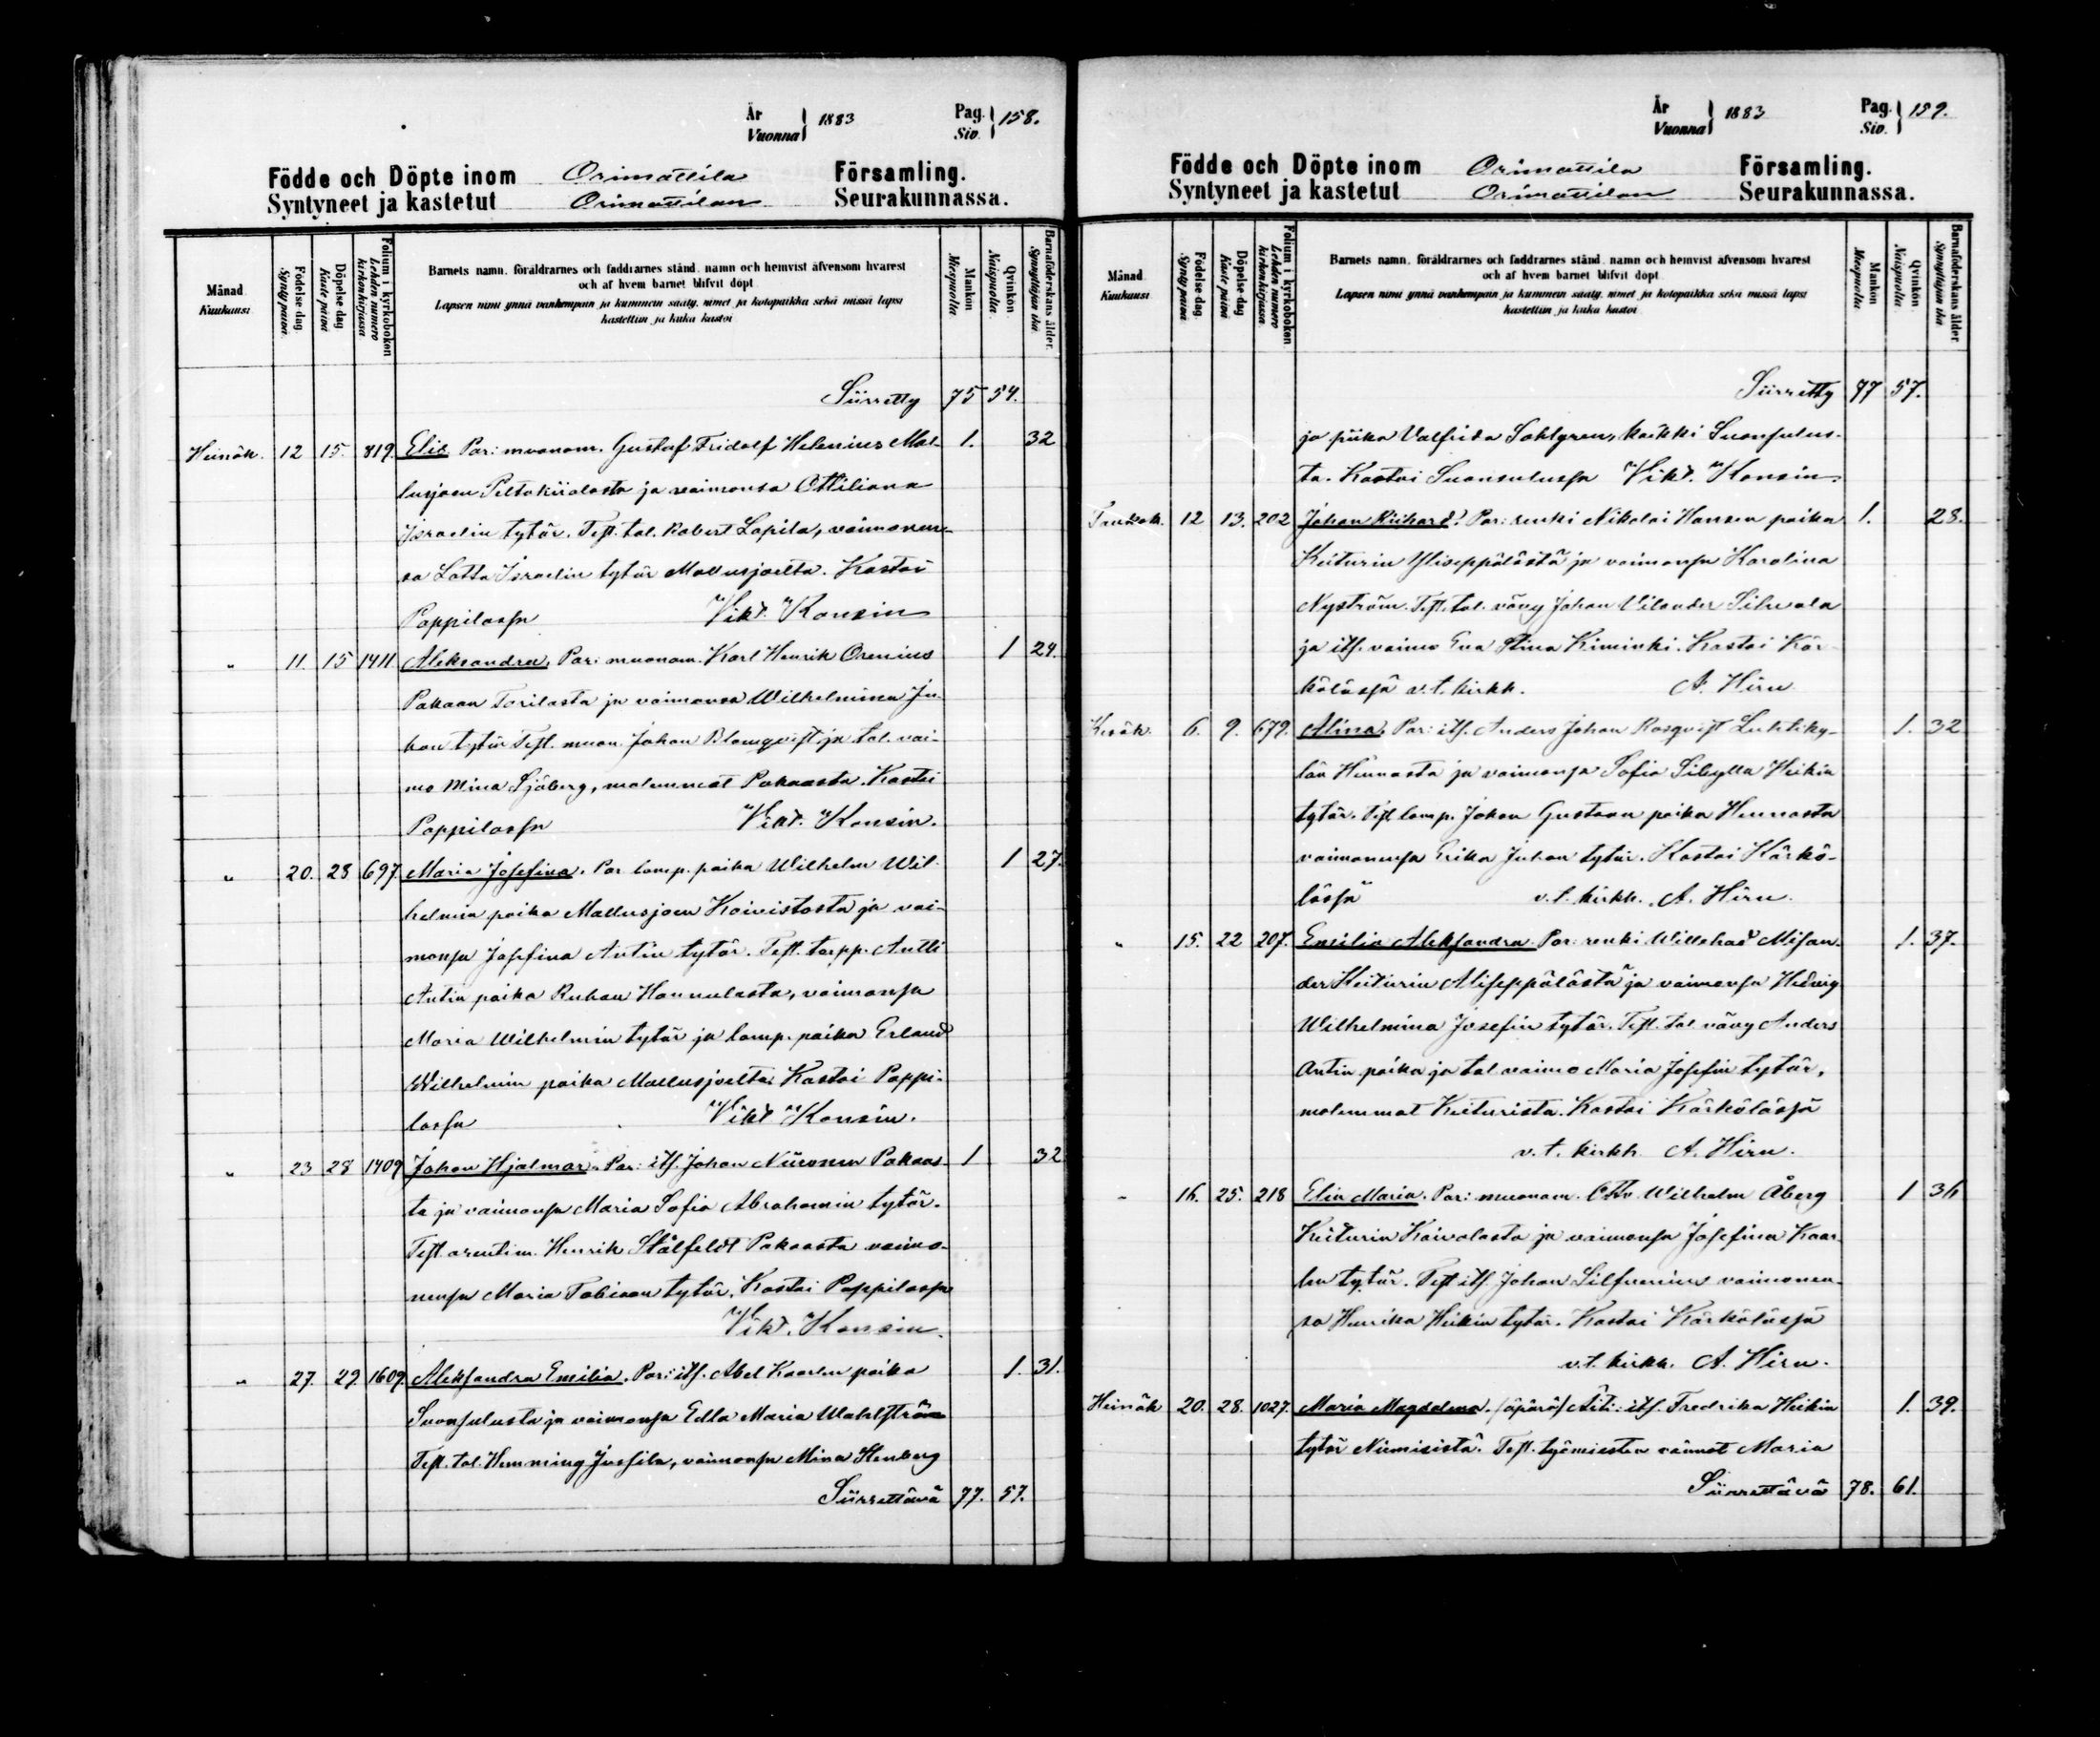 År
Vuonna } 1883
Pag.
Siv. } 158.
Födde och Döpte inom Orimattila Församling.
Syntyneet ja kastetut Orimattilan Seurakunnassa.
Månad
Kuukausi
Födelse dag.
Synty päivä
Döpelse dag
Kaste päivä
Folium i kyrkoboken
Lehden numero kirkonkirjassa
Barnets namn, föräldrarnes och faddrarnes stånd, namn och hemvist äfvensom hvarest
och af hvem barnet blifvit döpt
Lapsen nimi ynnä vanhempain ja kummein sääty, nimet ja kotopaikka sekä missä lapsi
kastettiin ja kuka kastoi
Mankön
Miespuolta
Qvinkön
Naispuolta
Barnaföderskans ålder.
Synnyttäjän ikä
Siirretty 75 54.
Heinäk. 12 15. 819. Elis Par: muonam. Gustaf Fridolf Helenius Mal- 1. 32
lusjoen Peltokiialasta ja vaimonsa Ottiliana
Israelin tytär. Test. tal. Robert Lapila, vaimonen-
sa Lotta Israelin tytär Mallusjoelta. Kastoi
Pappilassa Vikt. Konsin
" 11. 15 1411 Aleksandra, Par: muonam. Karl Henrik Orenius 1 24.
Pakaan Torilasta ja vaimonsa Wilhelmina Ju-
hon tytär Test. muon. Johan Blomqvist ja tal. vai-
mo Mina Sjöberg, molemmat Pakaasta. Kastoi
Pappilassa Vikt. Konsin.
" 20. 28 697. Maria Josefina. Par lamp. poika Wilhelm Wil- 1 27.
helmin poika Mallusjoen Koivistosta ja vai-
monsa Josefina Antin tytär. Test. torpp. Antti
Antin poika Ruhan Hannulasta, vaimonsa
Maria Wilhelmin tytär ja lamp. poika Erland
Wilhelmin poika Mallusjoelta. Kastoi Pappi-
lassa Vikt Konsin.
" 23 28 1409 Johan Hjalmar. Par: its. Johan Niironen Pakaas- 1 32
ta ja vaimonsa Maria Sofia Abrahamin tytär.
Test arentim. Henrik Stålfeldt Pakaasta vaimo-
nensa Maria Tobiaan tytär. Kastoi Pappilassa
Vikt. Konsin.
" 27. 29. 1609. Aleksandra Emilia. Par: its. Abel Kaarlen poika 1. 31.
Suonsulusta ja vaimonsa Edla Maria Wahlström
Test. tal. Hemming Jussila, vaimonsa Mina Stenberg
Siirrettävä 77. 57.
År
Vuonna } 1883
Pag.
Siv. } 159.
Födde och Döpte inom Orimattila Församling.
Syntyneet ja kastetut Orimattilan Seurakunnassa.
Månad
Kuukausi
Födelse dag.
Synty päivä
Döpelse dag
Kaste päivä
Folium i kyrkoboken
Lehden numero kirkonkirjassa
Barnets namn, föräldrarnes och faddrarnes stånd, namn och hemvist äfvensom hvarest
och af hvem barnet blifvit döpt
Lapsen nimi ynnä vanhempain ja kummein sääty, nimet ja kotopaikka sekä missä lapsi
kastettiin ja kuka kastoi
Mankön
Miespuolta
Qvinkön
Naispuolta
Barnaföderskans ålder.
Synnyttäjän ikä
Siirretty 77 57.
ja piika Valfrida Sahlgren, kaikki Suonsulus-
ta. Kastoi Suonsulussa Vikt. Konsin.
Toukok. 12 13. 202 Johan Richard. Par: renki Nikolai Hansen poika 1. 28.
Keiturin Yliseppälästä ja vaimonsa Karolina
Nyström. Test. tal. vävy Johan Vilander Sihvala
ja its. vaimo Eva Stina Kiminki. Kastoi Kär-
kölässä v.t. kirkk. A. Hirn.
Kesäk. 6. 9. 679. Alina. Par: its. Anders Johan Rosqvist Luhtiky- 1. 32
län Hennasta ja vaimonsa Sofia Sibylla Heikin
tytär. Test lamp. Johan Gustaan poika Hennasta
vaimonensa Erika Juhan tytär. Kastoi Kärkö-
lässä v.t. kirkk. A. Hirn.
" 15. 22 207. Emilia Aleksandra. Par: renki Willehad Misan- 1. 37.
der Keiturin Aliseppälästä ja vaimonsa Hedvig
Wilhelmina Josefin tytär. Test. tal vävy Anders
Antin poika ja tal vaimo Maria Josefin tytär,
molemmat Keiturista. Kastoi Kärkölässä
v.t. kirkh. A. Hirn.
" 16. 25. 218 Elin Maria. Par: muonam. Otto Wilhelm Åberg 1 36
Keiturin Koivalasta ja vaimonsa Josefina Kaar-
len tytär. Test its. Johan Silfvenius vaimonen-
sa Henrika Heikin tytär. Kastoi Kärkölässä
v.t. kirkk. A. Hirn.
Heinäk 20. 28. 1027. Maria Magdelena. (äpärä) Äiti: its. Fredrika Heikin 1. 39.
tytär Niemisistä. Test. työmiesten vaimot Maria
Siirrettävä 78. 61.